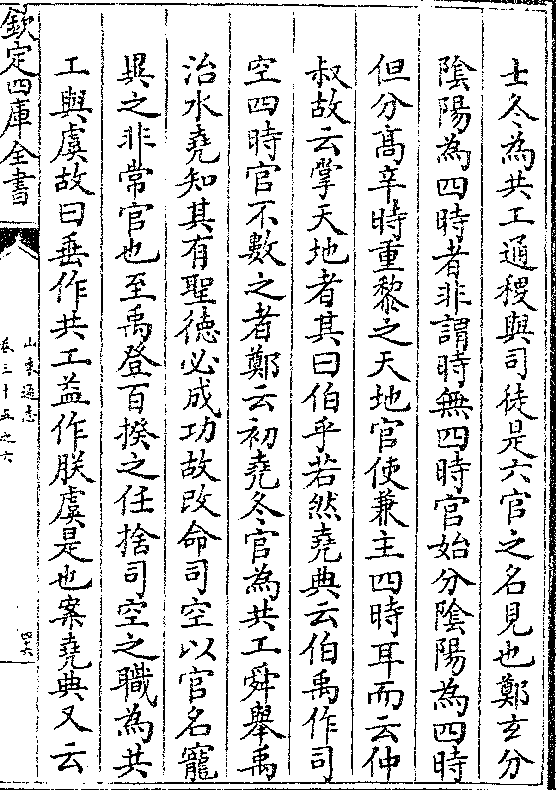 士冬為共工通稷與司徒是六官之名見也鄭玄分
隂陽為四時者非謂時無四時官始分隂陽為四時
但分髙辛時重黎之天地官使兼主四時耳而云仲
叔故云掌天地者其曰伯乎若然堯典云伯禹作司
空四時官不數之者鄭云初堯冬官為共工舜舉禹
治水堯知其有聖徳必成功故改命司空以官名寵
異之非常官也至禹登百揆之任捨司空之職為共
工與虞故曰垂作共工益作朕虞是也案堯典又云
欽定四庫全書
山東通志
卷三十五之六
四六